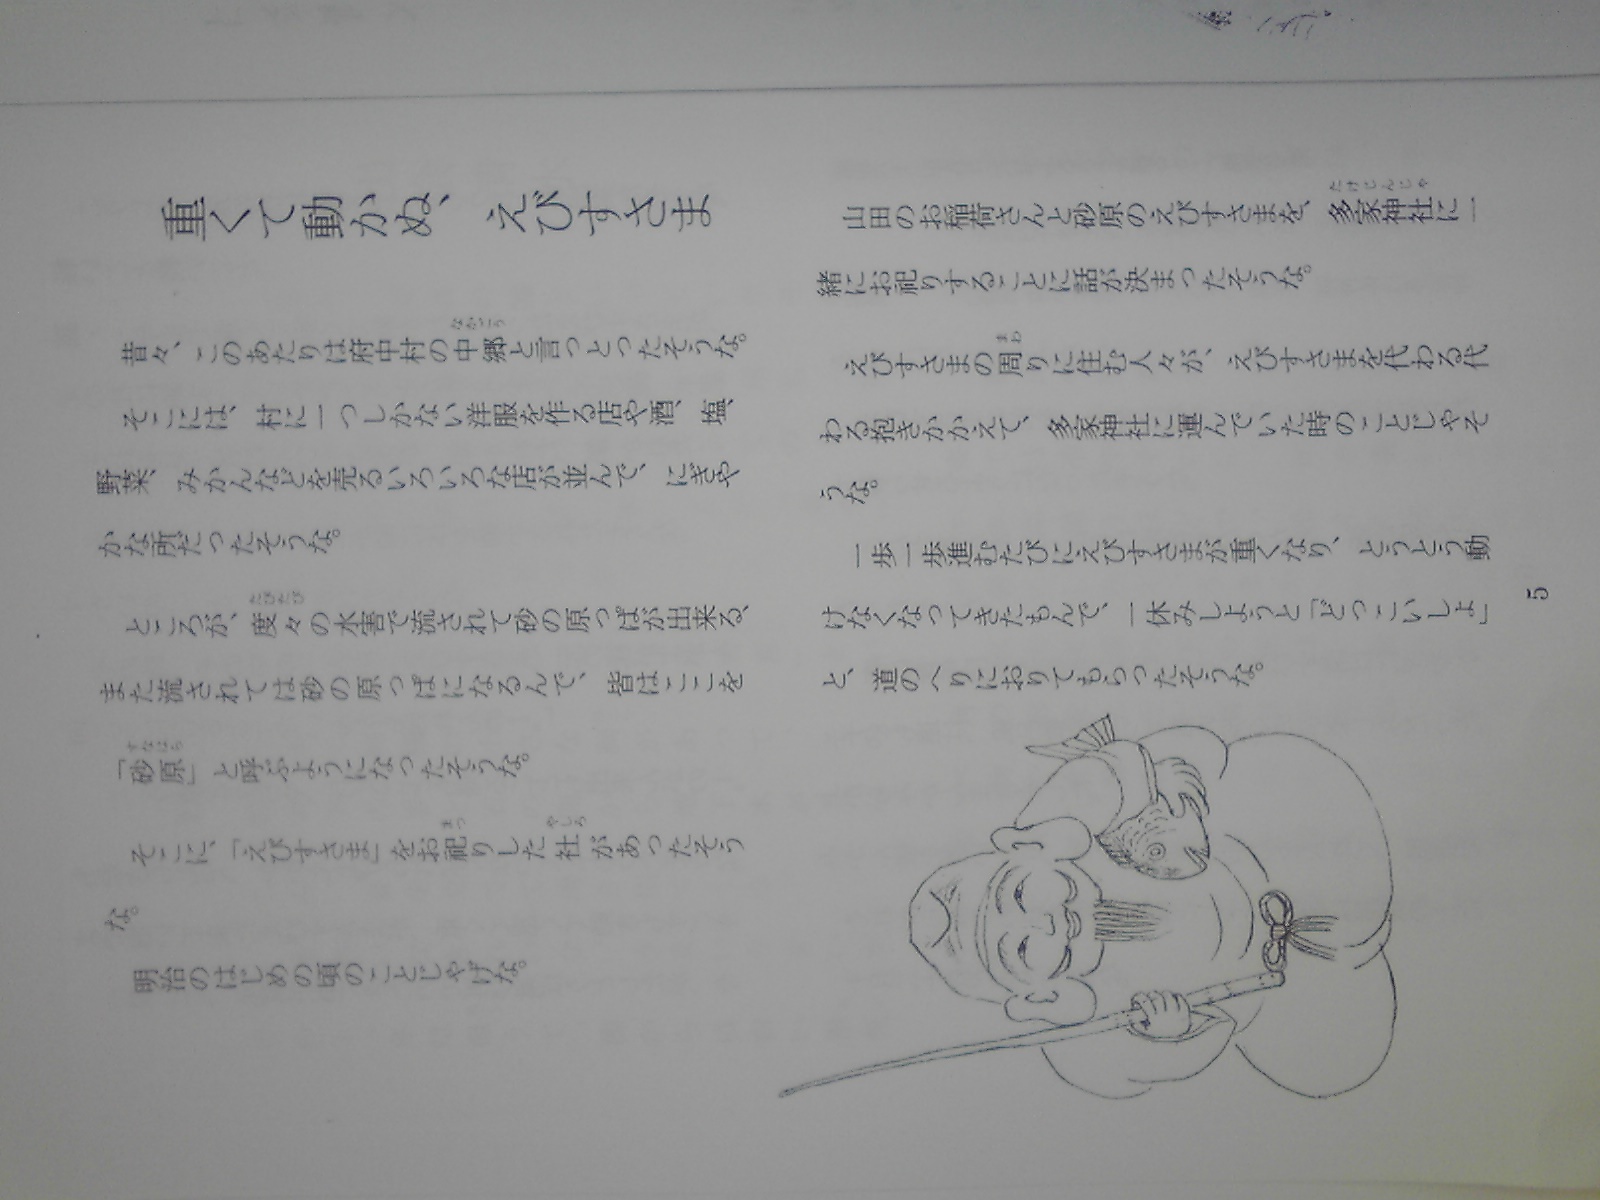 重くて動かぬ、えびすさま
昔々、このあたりは府中村の中郷と言っとったそうな。
なかごう
そこには、村に一つしかない洋服を作る店や酒、塩、
野菜、みかんなどを売るいろいろな店が並んで、にぎや
かな所だったそうな。
ところが、度々の水害で流されて砂の原っぱが出来る、
たびたび
また流されては砂の原っぱになるんで、皆はここを
「砂原」と呼ぶようになったそうな。
すなはら
そこに、「えびすさま」をお祀りした社があったそう
まつ
やしろ
な。
明治のはじめの頃のことじゃげな。
山田のお稲荷さんと砂原のえびすさまを、多家神社に一
たけじんじゃ
緒にお祀りすることに話が決まったそうな。
えびすさまの周りに住む人々が、えびすさまを代わる代
まわ
わる抱きかかえて、多家神社に運んでいた時のことじゃそ
うな。
一歩一歩進むたびにえびすさまが重くなり、とうとう動
けなくなってきたもんで、一休みしようと「どっこいしょ」
と、道のへりにおりてもらったそうな。
5